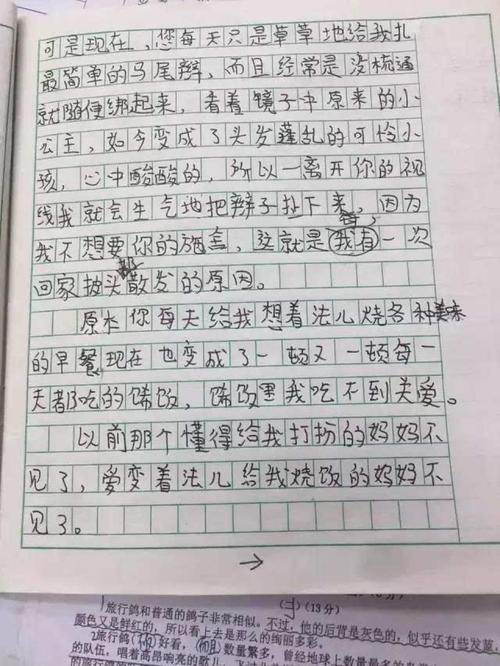 可是现在，您每天只是草草地给我扎
最简单的马尾辫，而且经常是没梳通
就随便绑起来，看着镜子中原来的小
公主，如今变成了头发蓬乱的可怜小
孩，心中酸酸的，所以一离开你的视
线我就会生气地把辫子扯下来，因为
我不想要你的施舍，这就是我有一次
回家披头散发的原因。
原本你每天给我想着法儿烧各种美味
的早餐现在也变成了一顿又一顿每一
天都吃的馊饭，馊饭里我吃不到关爱。
以前那个懂得给我打扮的妈妈不
见了，爱变着法儿给我烧饭的妈妈不
见了。
→
(二) (13分)
旅行鸽和普通的鸽子非常相似。不过，他的后背是灰色的，似乎还有些发蓝，
颜色又是鲜红的，所以看上去是那么的绚丽多彩。
2旅行鸽(  )好看，(  )数量繁多，曾经是地球上数量最多的
的队伍，唱着高昂响亮的歌儿，